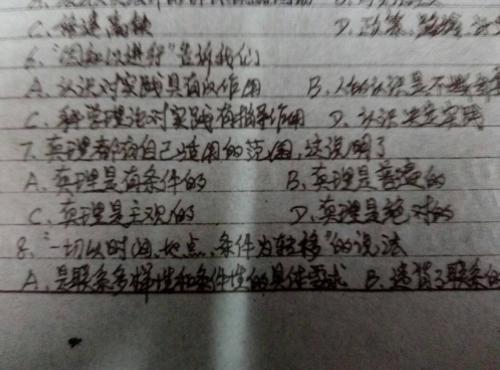 6、"因知以进行"告诉我们
A、认识对实践具有反作用 B、人的认识是不断
C、科学理论对实践有指导作用 D、认识决定实践
7、真理都有自己适用的范围,这说明了
A、真理是有条件的 B、真理是客观的
C、真理是主观的 D、真理是绝对的
8、"一切以时间、地点、条件为转移"的说法
A、是联系多样性和条件性的具体要求 B、违背了联系的